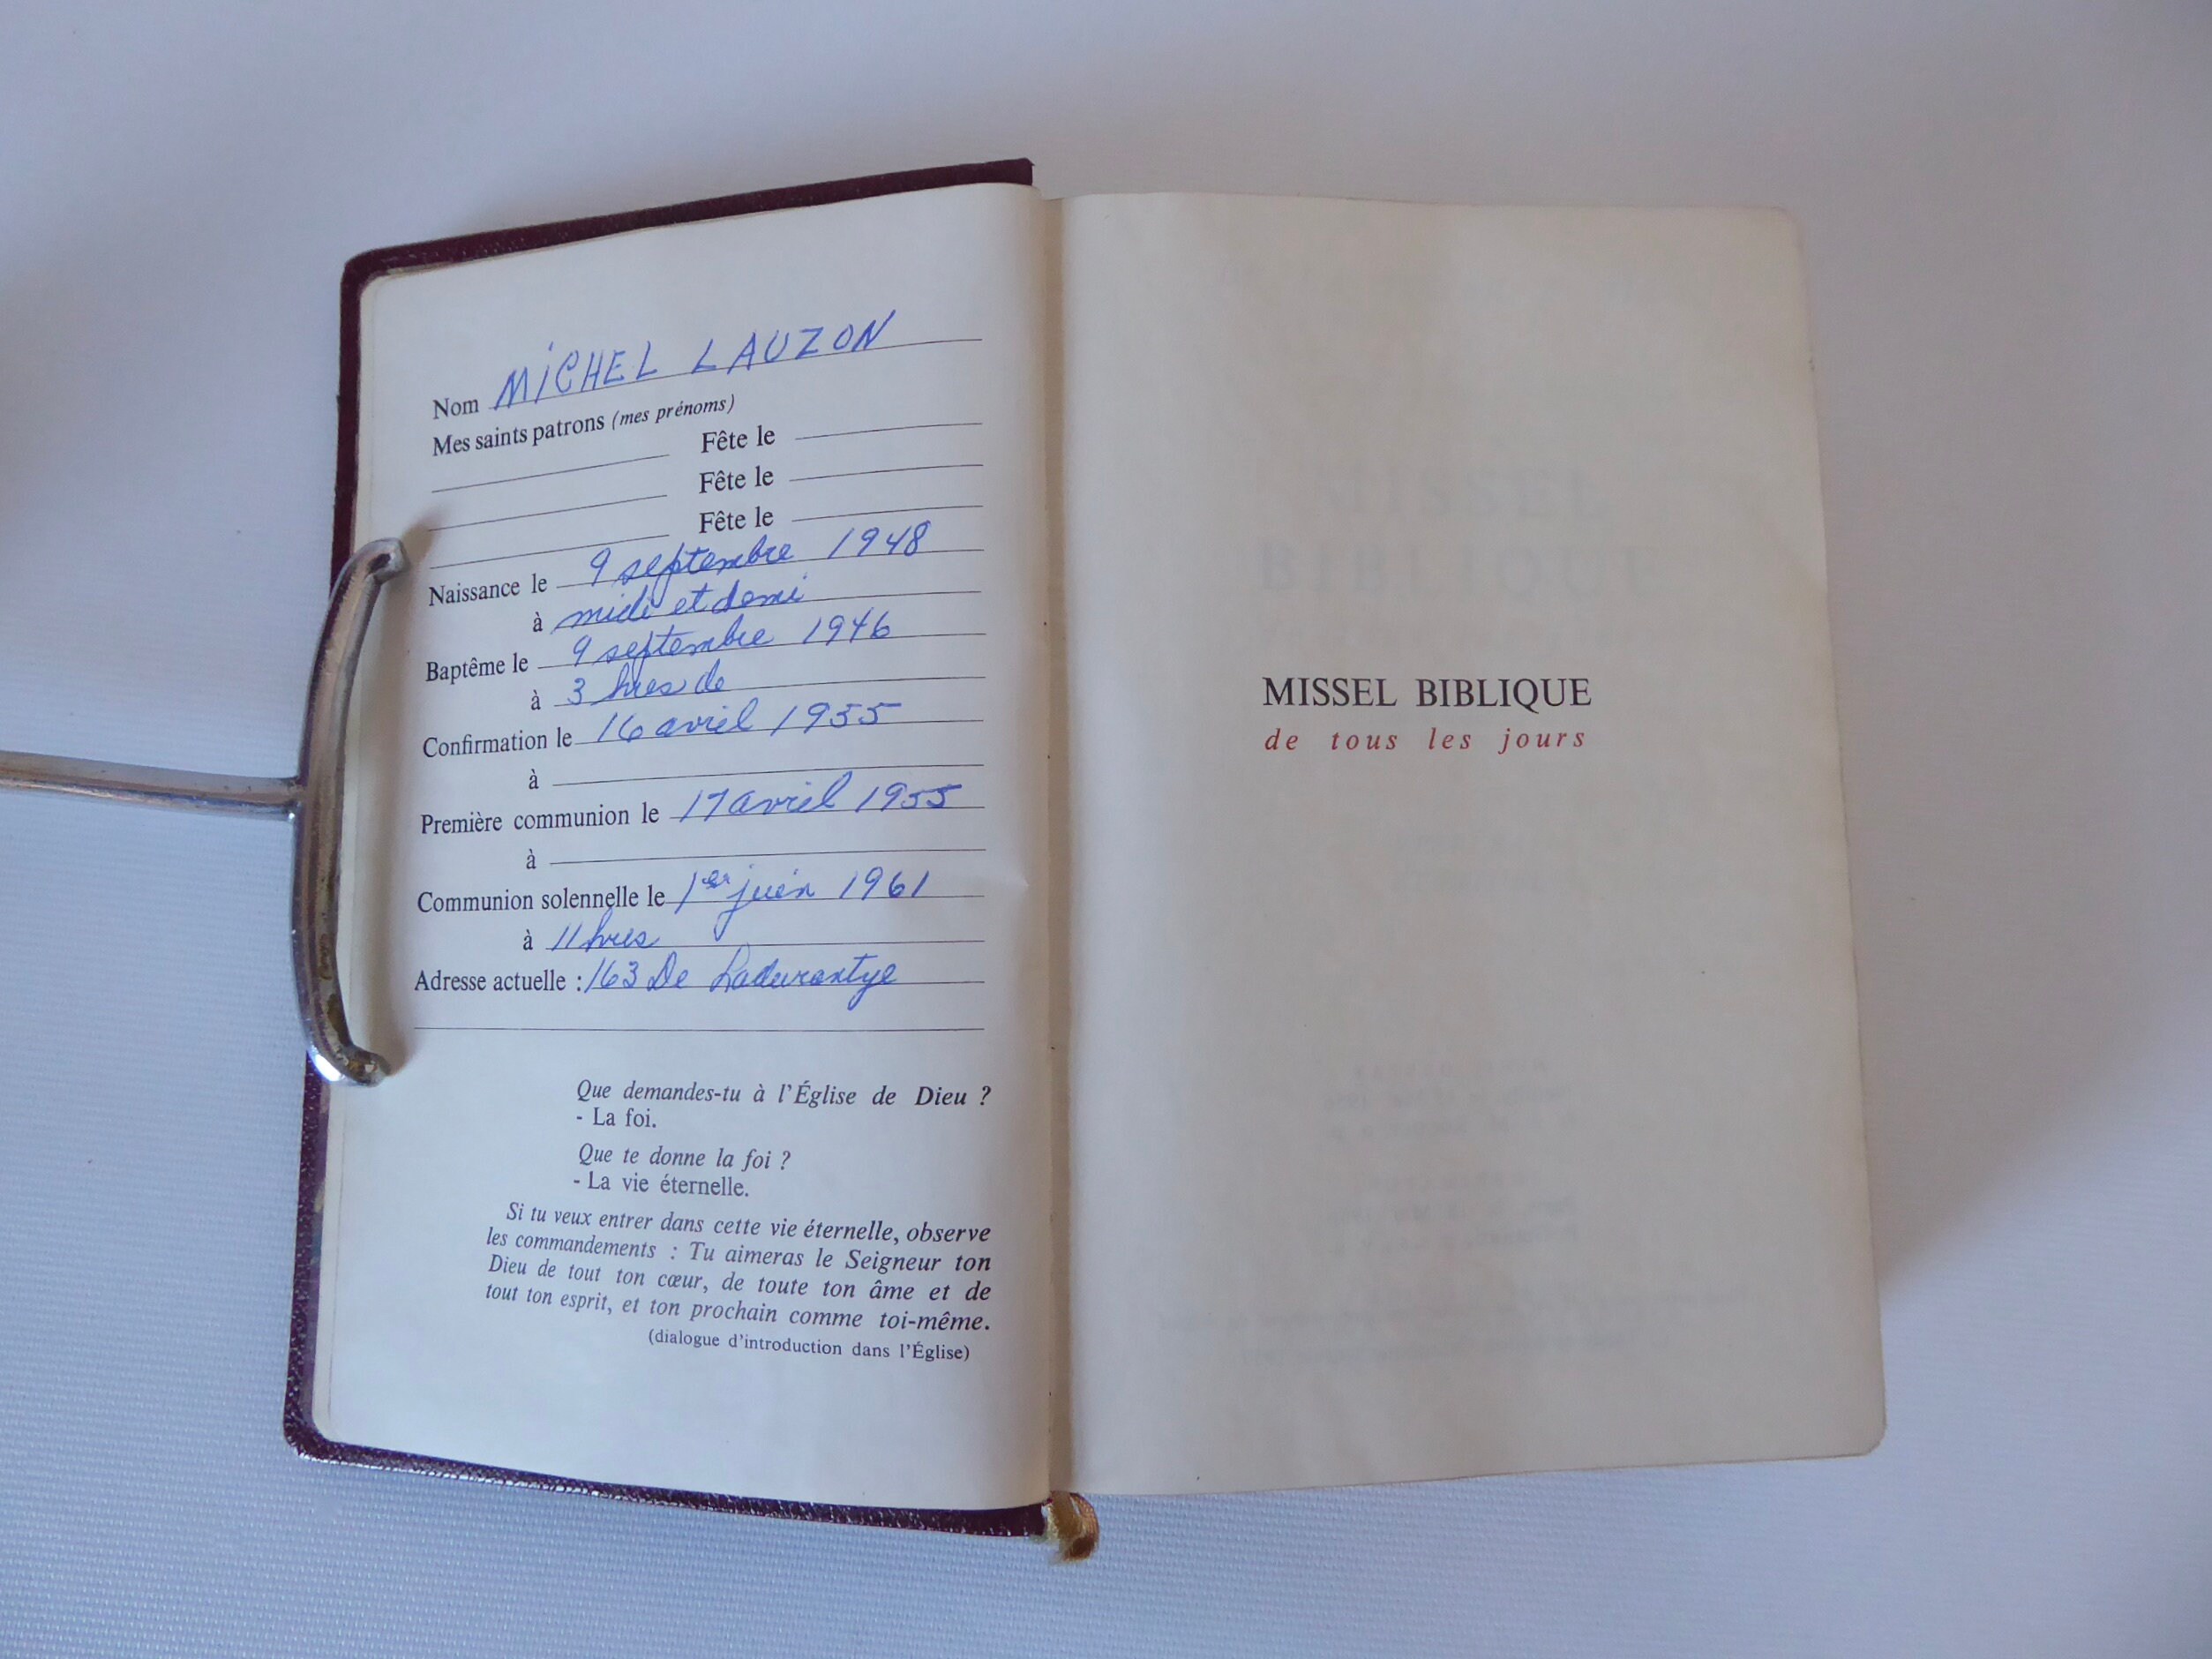 Nom MICHEL LAUZON
Mes saints patrons (mes prénoms)
Fête le
Fête le
Fête le
Naissance le 9 septembre 1948
à midi et demi
Baptême le 9 septembre 1946
à 3 hres de
Confirmation le 16 avril 1955
à
Première communion le 17 avril 1955
à
Communion solennelle le 1er juin 1961
à 11 hres
Adresse actuelle : 163 De Ladurantye
Que demandes-tu à l'Église de Dieu ?
- La foi.
Que te donne la foi ?
- La vie éternelle.
Si tu veux entrer dans cette vie éternelle, observe
les commandements : Tu aimeras le Seigneur ton
Dieu de tout ton cœur, de toute ton âme et de
tout ton esprit, et ton prochain comme toi-même.
(dialogue d'introduction dans l'Église)
MISSEL BIBLIQUE
de tous les jours